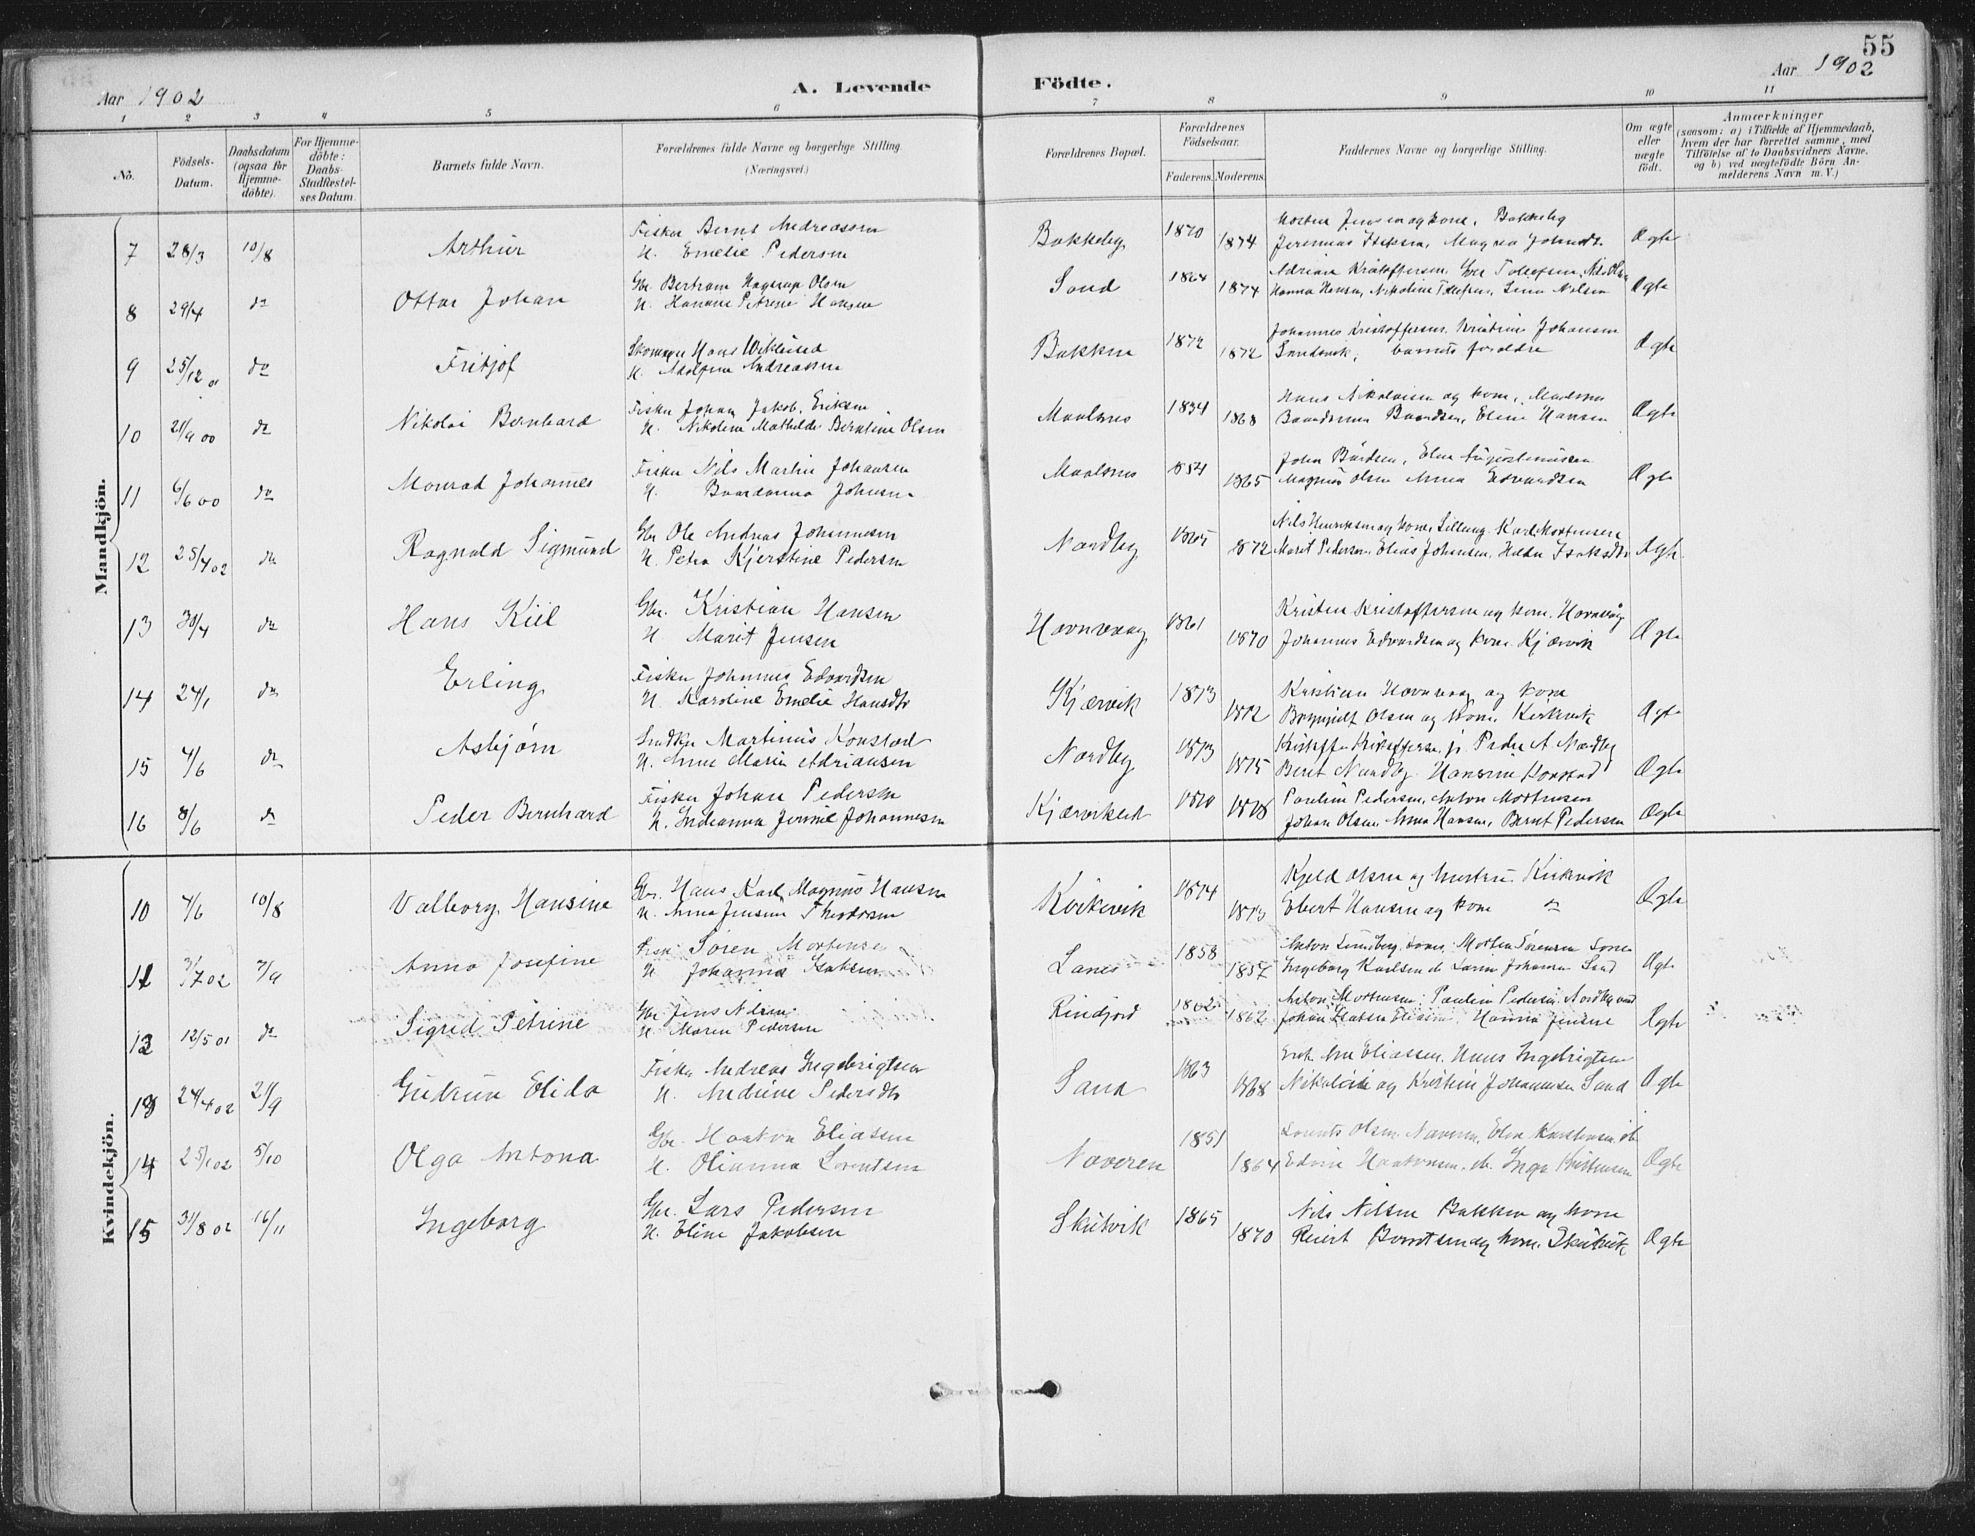 55
Aar 1902
A. Levende
Födte.
Aar 1902
1 2 3 4 5 6 7 8 9 10 11
No.
Födsels-Datum.
Daabsdatum (ogsaa for Hjemmedöbte).
For Hjemmedöbte: Daabs-Stadfæstelses Datum.
Barnets fulde Navn.
Forældrenes fulde Navne og borgerlige Stilling.
(Næringsvei.)
Forældrenes Bopæl.
Forældrenes Födselsaar.
Faderens. Moderens.
Faddernes Navne og borgerlige Stilling.
Om ægte eller uægte födt.
Anmærkninger
(saasom: a) i Tilfælde af Hjemmedaab, hvem der har forrettet samme, med Tilföielse af to Daabsvidners Navne. og b) ved uægtefödte Börn Anmelderens Navn m. V.)
Mandkjön.
7 28/3 10/8 Arthur
Fisker Bernt Andreassen
H. Emelie Pedersen
Bakkeby 1870 1874
Morten Jensen og kone, Bakkeby
Jeremias Isaksen, Magna Johansd.
Ægte
8 29/4 do Ottar Johan
Gbr. Bertram Hagerup Olsen
H. Hanna Petrine Hansen
Sand 1864 1874
Adrian Kristoffersen, Tollefsen, Nils Olsen
Hanna Hansen, Nikoline Tollefsen, Lina Nilsen
Ægte
9 25/12 01 do Fritjof
Skomager Hans Wiklund
H. Adolfine Andreassen
Bakken 1872 1872
Johannes Kristoffersen, Kristine Johansen
Sandvik, barnets foreldre
Ægte
10 21/9 00 do Nikolai Bernhard
Fisker Johan Jakob Eriksen
H. Nikoline Mathilde Berntine Olsen
Maalsnes 1834 1868
Hans Nikolaisen og kone, Maalsnes
Baardsen, Eline Hansen
Ægte
11 6/6 00 do Monrad Johannes
Fisker Nils Martin Johansen
H. Johnsen
Maalsnes 1854 1865
John Bårdsen, Elen Augustinussen
Magnus Olsen Anna Edvardsen
Ægte
12 25/4 02 do Ragnald Sigmund
Gbr Ole Andreas Johannesen
H. Petra Kjerstine Pedersen
Nordby 1865 1872
Nils Henriksen og kone, Karl Mortensen
Marit Pedersen, Elias Johansen, Hilda Isaksdtr
Ægte
13 30/4 do Hans Kiil
Gbr. Kristian Hansen
H Marit Jensen
Havnevaag 1861 1870
Kristen Kristoffersen og kone, Havnvåg
Johannes Edvardsen og kone Kjærvik
Ægte
14 24/1 do Erling
Fisker Johannes Edvardsen
H. Karoline Emelie Hansdtr
Kjærvik 1873 1872
Kristian Havnevaag og kone
Brynjulf Olsen og kone, Kirkvik
Ægte
15 4/6 do Asbjørn
Martinus Konstad
H. Anne Marie Adriansen
Nordby 1873 1875
Kristoffer Kristoffersen jr. Peder A. Nordby
Beret Nordby Hansine Konstad
Ægte
16 8/6 do Peder Bernhard
Fisker Johan Pedersen
H. Indianna Jensine Johannesen
1870 1878
Pauline Pedersen, Anton Mortensen
Johan Olsen Anna Hansen, Bernt Pedersen
Ægte
Kvindekjön.
10 7/6 10/8 Valborg Hansine
Gbr. Hans Karl Magnus Hansen
H. Anna Jensine Theodorsen
Kirkevik 1874 1873
Kjeld Olsen og hustru Kirkvik
Ebert Hansen og kone do
Ægte
11 3/7 02 7/9 Anna Josefine
Fisk. Søren Mortensen
H. Johanna Isaksen
Lanes 1858 1857
Anton Lundberg, Morten Sørensen
Ingeborg Karlsen Johansen Sand
Ægte
12 12/5 01 do Sigrid Petrine
Gbr. Jens Nilsen
H. Maren Pedersen
Rindjord 1862 1862
Anton Mortensen, Pauline Pedersen Nordby
Johan Eliasen Hanna Jensine
Ægte
13 24/4 02 21/9 Gudrun Elida
Fisker Andreas Ingebrigtsen
H. Andrine Pedersdtr
Sand 1863 1868
Eliassen, Hans Ingebrigtsen
Nikolai og Kristine Johannesen Sand
Ægte
14 25/1 02 5/10 Olga Antona
Gbr. Haakon Eliasen
H. Olianna Lorentsen
Naveren 1851 1864
Lorents Olsen Naveren, Elen Karstensen do
Edvin Haakonsen, do, Inga Kristensen
Ægte
15 31/8 02 16/11 Ingeborg
Gbr. Lars Pedersen
H. Eline Jakobsen
Skutvik 1865 1870
Nils Nilsen Bakken og kone
Berntsen og kone, Skutvik
Ægte